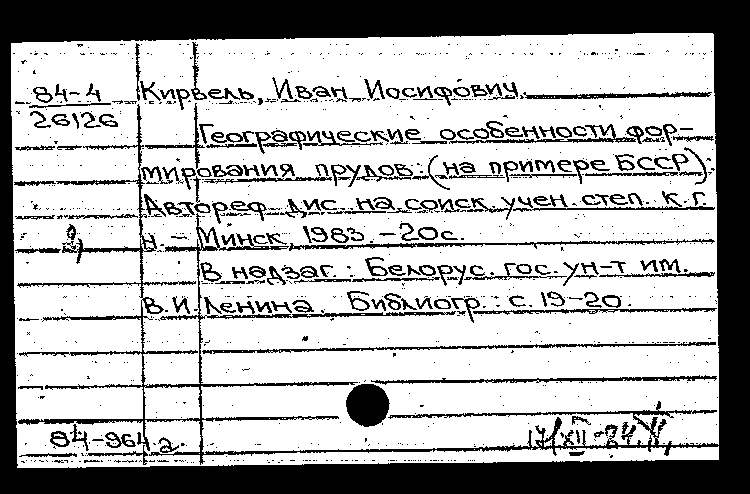 84-4
26126
Кирвель, Иван Иосифович.
Географические особенности фор-
мирования прудов: (на примере БССР):
Автореф. дис. на соиск. учен. степ. к. г.
н. - Минск, 1983. - 20с.
В надзаг.: Белорус. гос. ун-т им.
В.И. Ленина. Библиогр.: с. 19-20.
84-964
17/XII-84.